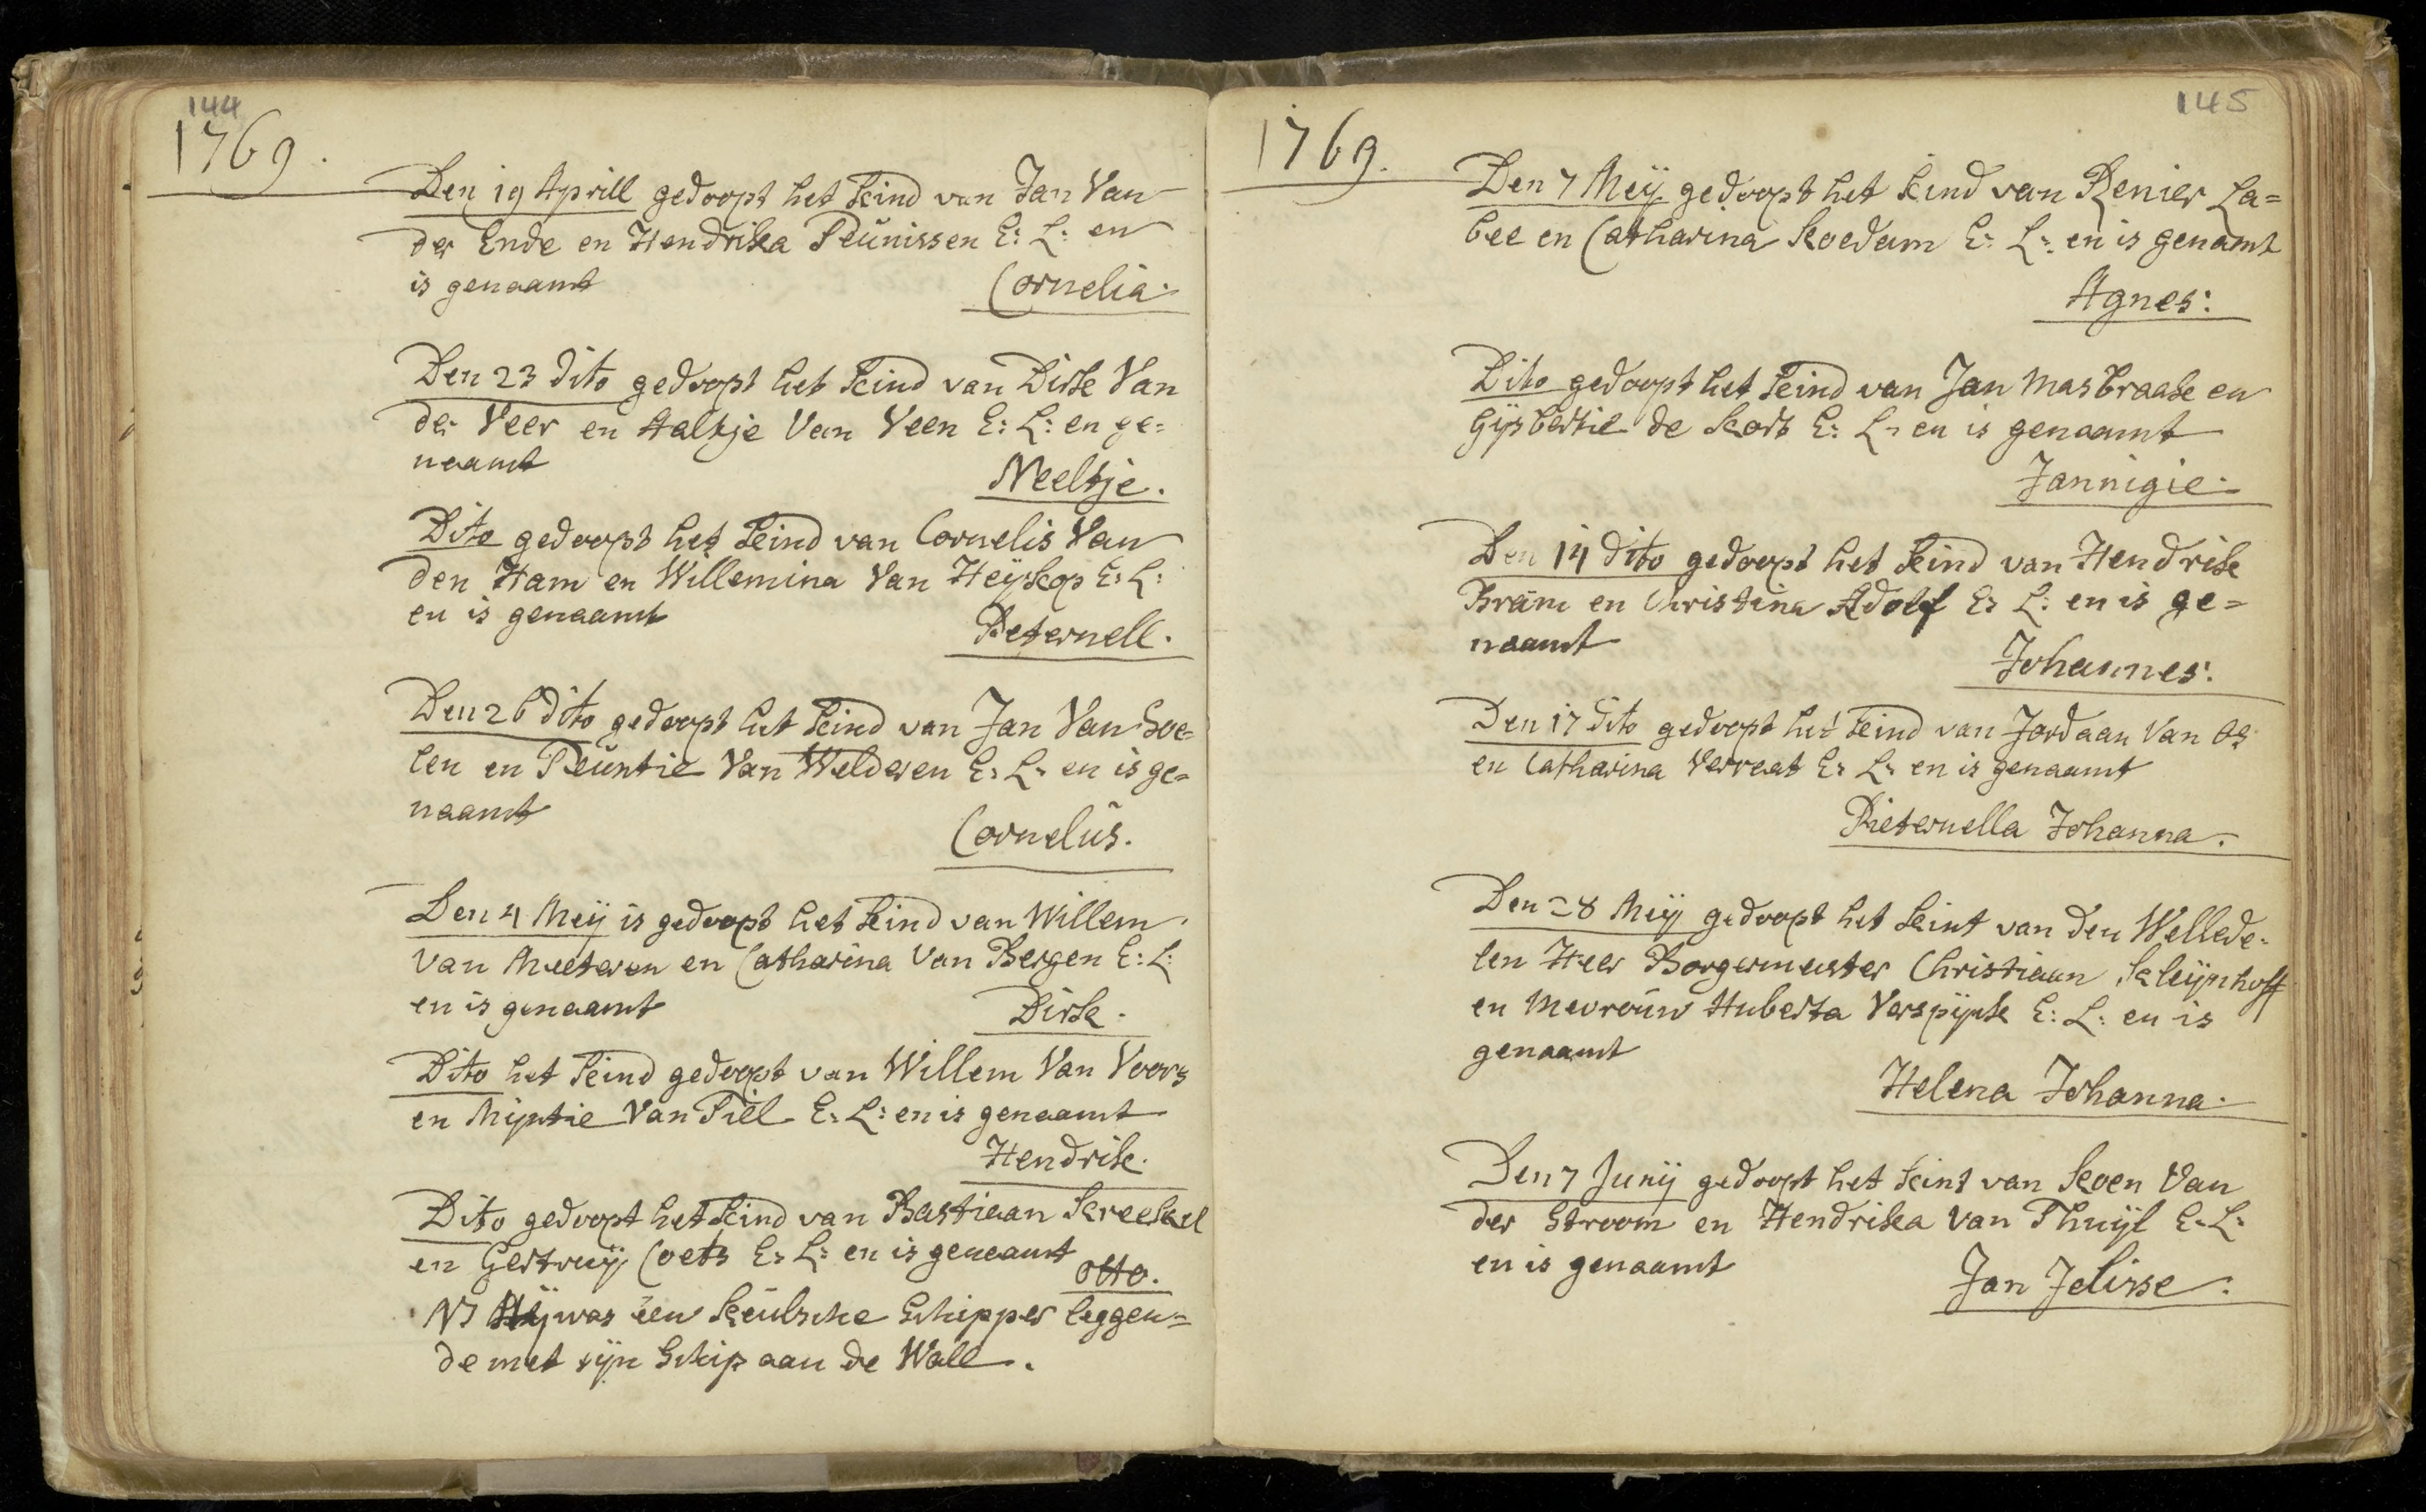 144
1769.
Den 19 Aprill gedoopt het kind van Jan Van
der Ende en Hendrika Teunissen E: L: en
is genaamt
Cornelia.
Den 23 dito gedoopt het kind van Dirk Van
der Veer en Aaltje Van Veen E: L: en ge=
naamt
Neeltje.
Dito gedoopt het kind van Cornelis Van
den Ham en Willemina Van Heijkop E: L:
en is genaamt
Peternell.
Den 26 dito gedoopt het kind van Jan Van Soe=
len en Teuntie Van Welderen E: L: en is ge=
naamt
Cornelus.
Den 4 Meij is gedoopt het kind van Willem
Van Meeteren en Catharina Van Bergen E: L:
en is genaamt
Dirk.
Dito het kind gedoopt van Willem Van Voors
en Mijntie Van Tiel E: L: en is genaamt
Hendrik.
Dito gedoopt het kind van Bastiaan
en Gertruij Coets E: L: en is genaamt
Otto.
NB Hij was een keulsche Schipper leggen=
de met sijn Schip aan de Wall.
145
1769.
Den 7 Meij gedoopt het kind van Renier La=
bee en Catharina Koedam E: L: en is genamt
Agnes:
Dito gedoopt het kind van Jan Masbraak en
Gijsbertie de Kort E: L: en is genaamt
Jannigie.
Den 14 dito gedoopt het kind van Hendrik
Bram en Christina Adolf E: L: en is ge=
naamt
Johannes:
Den 17 dito gedoopt het kind van Jordaan Van Os
en Catharina Verreat E: L: en is genaamt
Pieternella Johanna.
Den 28 Meij gedoopt het kint van den Wellede=
len Heer Borgermeester Christiaan Kleijnhoff
en Mevrouw Huberta Verspijck E: L: en is
genaamt
Helena Johanna.
Den 7 Junij gedoopt het kint van Koen Van
der Stroom en Hendrika Van Thuijl E: L:
en is genaamt
Jan Jelisse.